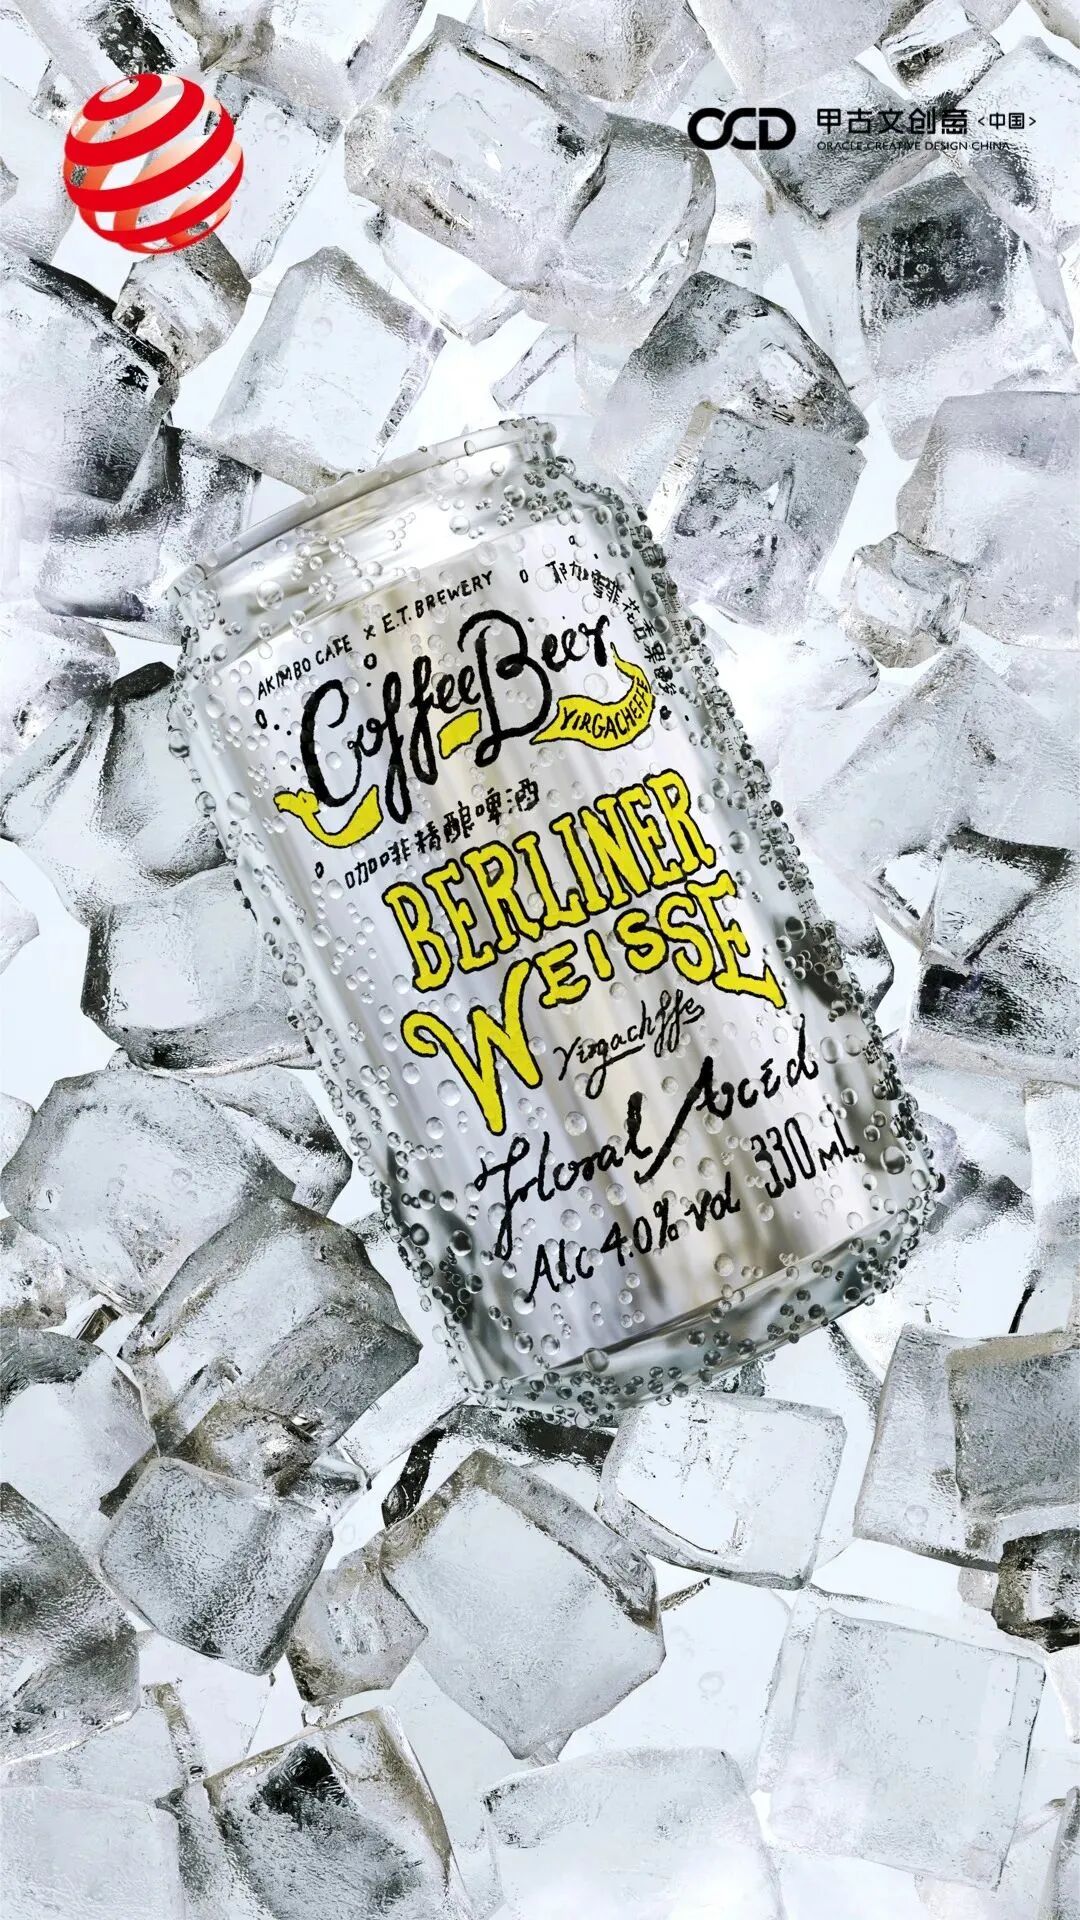 OCD 甲古文创意<中国>
ORACLE CREATIVE DESIGN CHINA
AKIMBO CAFE × E.T. BREWERY
耶加雪菲花香果酸
Coffee Beer
YIRGACHEFFE
咖啡精酿啤酒
BERLINER
WEISSE
Yirgachffe
Floral Aced
Alc 4.0% vol 330mL